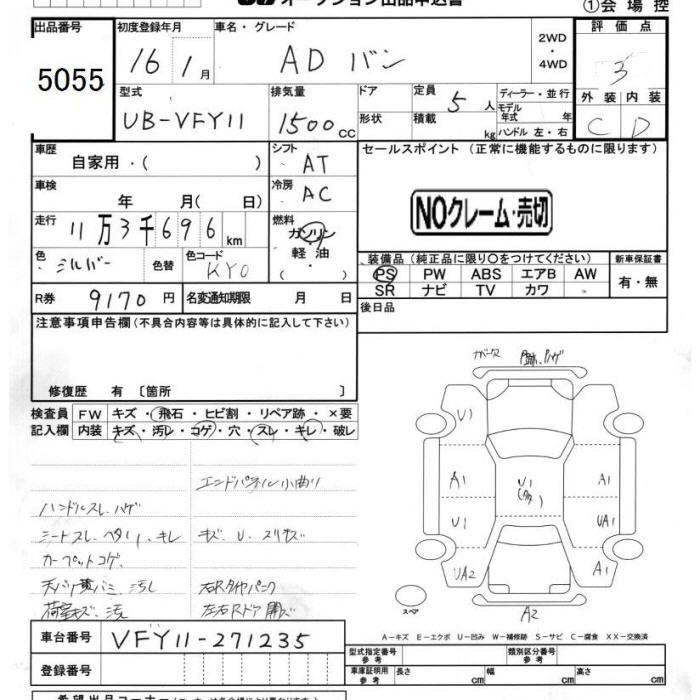 オークション出品申込書
①会場控
出品番号 初度登録年月 車名・グレード 2WD・4WD 評価点
5055 16 1月 ADバン 3
型式 排気量 ドア 定員 5人 ディーラー・並行 外装 内装
UB-VFY11 1500cc 形状 積載 kg モデル年式 年 ハンドル 左・右 C D
車歴 自家用・( ) シフト AT セールスポイント(正常に機能するものに限ります)
車検 年 月(日) 冷房 AC
NOクレーム・売切
走行 11万3千696km 燃料 ガソリン 軽油 ( ・ )
色 シルバー 色替 色コード KY0
装備品(純正品に限り〇をつけてください) 新車保証書
PS PW ABS エアB AW 有・無
SR ナビ TV カワ
R券 9170円 名変通知期限 月 日 後日品
注意事項申告欄(不具合内容等は具体的に記入して下さい)
修復歴 有〔箇所 〕
検査員 FW キズ・飛石・ヒビ割・リペア跡・×要
記入欄 内装 キズ・汚レ・コゲ・穴・スレ・キレ・破レ
エンドパネル小曲り
ハンドルスレ、ハゲ
シートスレ、ヘタリ、キレ キズ U スリキズ
カーペットコゲ
天バリ黄バミ、汚レ 右Rタイヤパンク
荷室キズ、汚
U1
A1 U1 A1
U1 UA1
UA2 A1
スペア A2
A-キズ E-エクボ U-凹み W-補修跡 S-サビ C-腐食 XX-交換済
車台番号 VFY11-271235 型式指定番号 参考 類別区分番号 参考
登録番号 車庫証明用 参考 長さ cm 幅 cm 高さ cm
希望出品コーナー